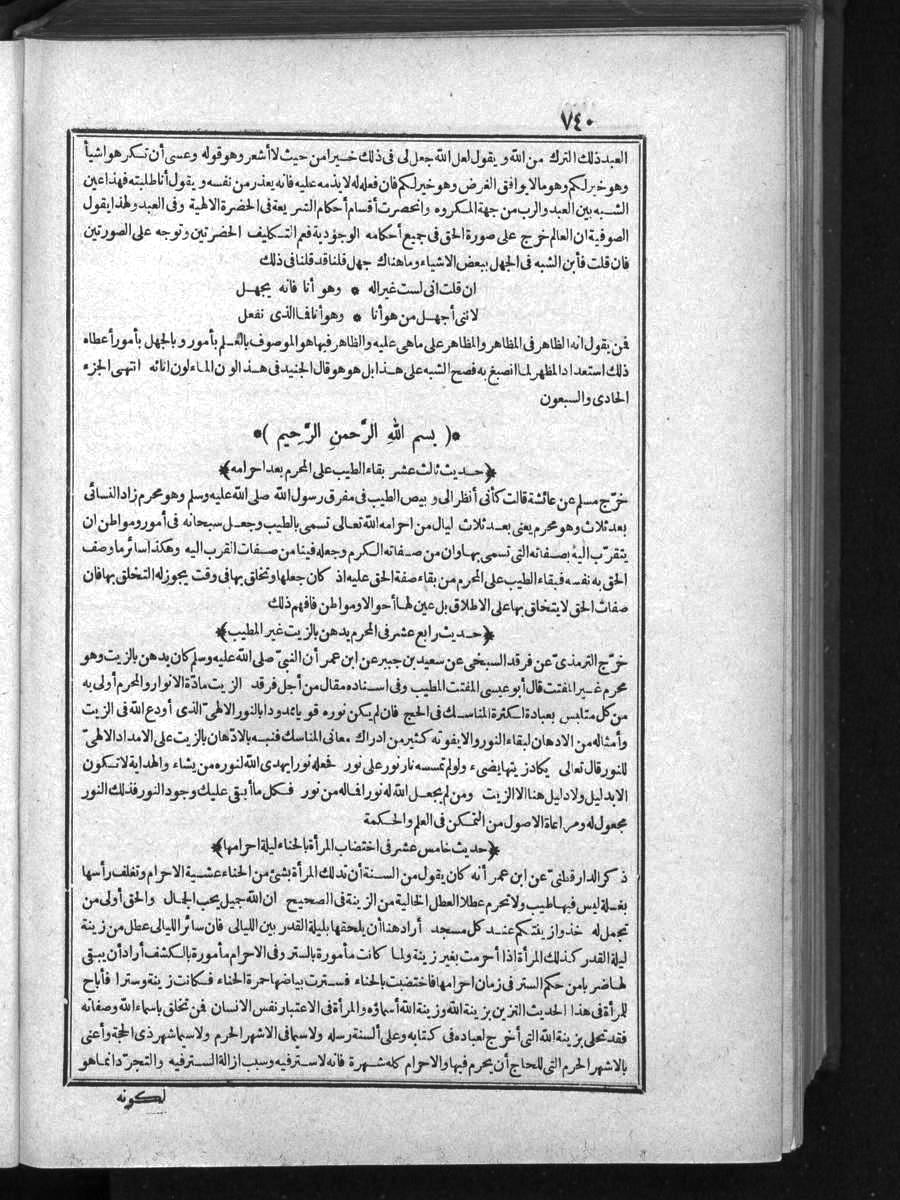 ٧٤٠
العبد ذلك الترك من الله و يقول لعل الله جعل لى فى ذلك خيرا من حيث لا أشعر وهو قوله وعسى أن تكرهوا شيأ
وهو خير لكم وهو ما لا يوافق الغرض وهو خير لكم فان فعله له لا يذمه عليه فانه يعذر من نفسه و يقول أنا طلبته فهذا عين
الشبه بين العبد والرب من جهة المكروه وانحصرت أقسام أحكام الشريعة فى الحضرة الالهية وفى العبد ولهذا يقول
الصوفية ان العالم خرج على صورة الحق فى جميع أحكامه الوجودية فعم التكليف الحضرتين وتوجه على الصورتين
فان قلت فأين الشبه فى الجهل ببعض الاشياء وما هناك جهل قلنا قد قلنا فى ذلك
ان قلت انى لست غيرا له * وهو أنا فانه يجهل
لاننى أجهل من هو أنا * وهو أنا فما الذى نفعل
فمن يقول انه الظاهر فى المظاهر والمظاهر على ماهى عليه والظاهر فيها هو الموصوف بالعلم بأمور و بالجهل بأمور أعطاه
ذلك استعداد المظهر لما انصبغ به فصح الشبه على هذا بل هو هو قال الجنيد فى هذا لون الماء لون انائه انتهى الجزء
الحادى والسبعون
*( بسم اللهِ الرَّحمنِ الرَّحِيم )*
﴿حديث ثالث عشر بقاء الطيب على المحرم بعد احرامه﴾
خرّج مسلم عن عائشة قالت كأنى أنظر الى و بيص الطيب فى مفرق رسول الله صلى الله عليه وسلم وهو محرم زاد النسائى
بعد ثلاث وهو محرم يعنى بعد ثلاث ليال من احرامه الله تعالى تسمى بالطيب وجعل سبحانه فى أمور ومواطن ان
يتقرّب اليه بصفاته التى تسمى بها وان من صفاته الكرم وجعله فينا من صفات القرب اليه وهكذا سائر ما وصف
الحق به نفسه فبقاء الطيب على المحرم من بقاء صفة الحق عليه اذ كان جعلها وتخلق بها فى وقت يجوز له التخلق بها فان
صفات الحق لا يتخلق بها على الاطلاق بل عين لها أحوالا ومواطن فافهم ذلك
﴿حديث رابع عشر فى المحرم يدهن بالزيت غير المطيب﴾
خرّج الترمذىّ عن فرقد السبخى عن سعيد بن جبير عن ابن عمر أن النبىّ صلى الله عليه وسلم كان يدهن بالزيت وهو
محرم غير المفتت قال أبو عيسى المفتت المطيب وفى اسناده مقال من أجل فرقد الزيت مادّة الانوار والمحرم أولى به
من كل متلبس بعبادة لكثرة المناسك فى الحج فان لم يكن نوره قويا ممدودا بالنور الالهىّ الذى أودع الله فى الزيت
وأمثاله من الادهان لبقاء النور والا يفوته كثير من ادراك معانى المناسك فنبه بالادّهان بالزيت على الامداد الالهىّ
للنور قال تعالى يكاد زيتها يضىء ولو لم تمسسه نار نور على نور فجعله نورا يهدى الله لنوره من يشاء والهداية لا تكون
الا بدليل ولا دليل هنا الا الزيت ومن لم يجعل الله له نورا فماله من نور فكل ما أبقى عليك وجود النور فذلك النور
مجعول له ومراعاة الاصول من التمكن فى العلم والحكمة
﴿حديث خامس عشر فى اختضاب المرأة بالحناء ليلة احرامها﴾
ذكر الدارقطنىّ عن ابن عمر أنه كان يقول من السنة أن تدلك المرأة بشئ من الحناء عشية الاحرام وتغلف رأسها
بغسلة ليس فيها طيب ولا تحرم عطلا العطل الخالية من الزينة فى الصحيح ان الله جميل يحب الجمال والحق أولى من
تجمل له خذوا زينتكم عند كل مسجد أراد هنا أن يلحقها بليلة القدر بين الليالى فان سائر الليالى عطل من زينة
ليلة القدر كذلك المرأة اذا أحرمت بغير زينة ولما كانت مأمورة بالستر وفى الاحرام مأمورة بالكشف أراد أن يبقى
لها ضربا من حكم الستر فى زمان احرامها فاختضبت بالحناء فسترت بياضها حمرة الحناء فكانت زينة وسترا فأباح
للمرأة فى هذا الحديث التزين بزينة الله وزينة الله أسماؤه والمرأة فى الاعتبار نفس الانسان فمن تخلق باسماء الله وصفاته
فقد تحلى بزينة الله التى أخرج لعباده فى كتابه وعلى ألسنة رسله ولا سيما فى الاشهر الحرم ولا سيما شهر ذى الحجة وأعنى
بالاشهر الحرم التى للحاج أن يحرم فيها والاحرام كله شهرة فانه لا ستر فيه وسبب ازالة الستر فيه والتجرّد انما هو
لكونه